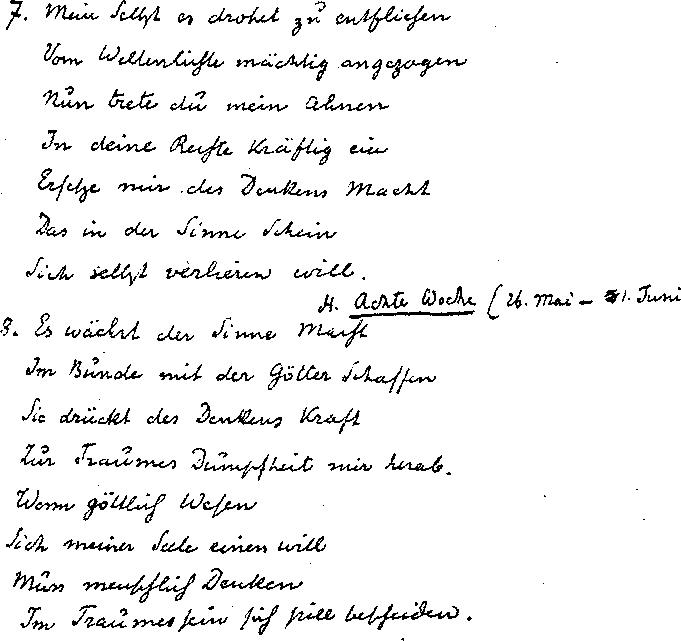 7. Mein Selbst es drohet zu entfliehen
Vom Weltenlichte mächtig angezogen
Nun trete du mein Ahnen
In deine Rechte kräftig ein
Ersetze mir des Denkens Macht
Das in der Sinne Schein
Sich selbst verlieren will.
H. Achte Woche (26. Mai – 1. Juni
8. Es wächst der Sinne Macht
Im Bunde mit der Götter Schaffen
Sie drückt des Denkens Kraft
Zur Traumes Dumpfheit mir herab.
Wenn göttlich Wesen
Sich meiner Seele einen will
Muss menschlich Denken
Im Traumessein sich still bescheiden.